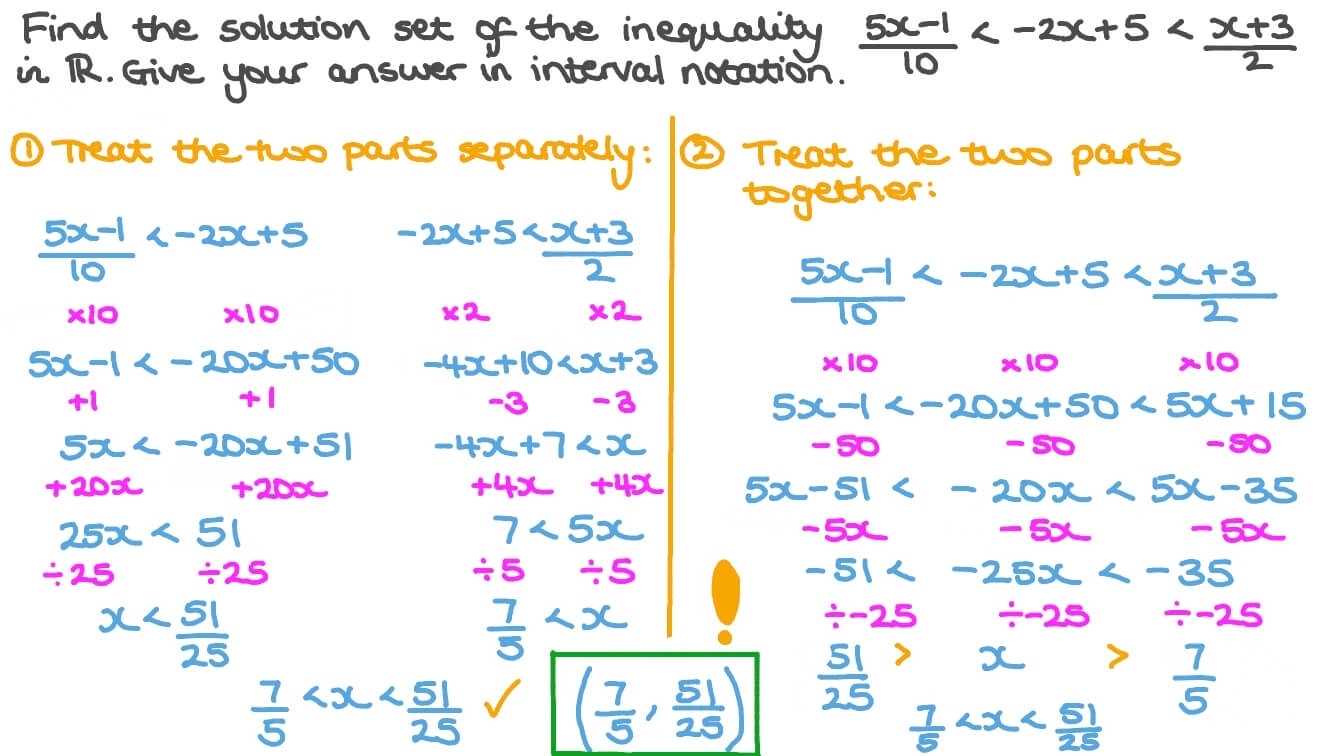 Find the solution set of the inequality (5x-1)/10 < -2x+5 < (x+3)/2
in ℝ. Give your answer in interval notation.
① Treat the two parts separately:
(5x-1)/10 < -2x+5
×10 ×10
5x-1 < -20x+50
+1 +1
5x < -20x+51
+20x +20x
25x < 51
÷25 ÷25
x < 51/25
-2x+5 < (x+3)/2
×2 ×2
-4x+10 < x+3
-3 -3
-4x+7 < x
+4x +4x
7 < 5x
÷5 ÷5
7/5 < x
7/5 < x < 51/25 ✓
(7/5, 51/25)
② Treat the two parts
together:
(5x-1)/10 < -2x+5 < (x+3)/2
×10 ×10 ×10
5x-1 < -20x+50 < 5x+15
-50 -50 -50
5x-51 < -20x < 5x-35
-5x -5x -5x
-51 < -25x < -35
! ÷-25 ÷-25 ÷-25
51/25 > x > 7/5
7/5 < x < 51/25